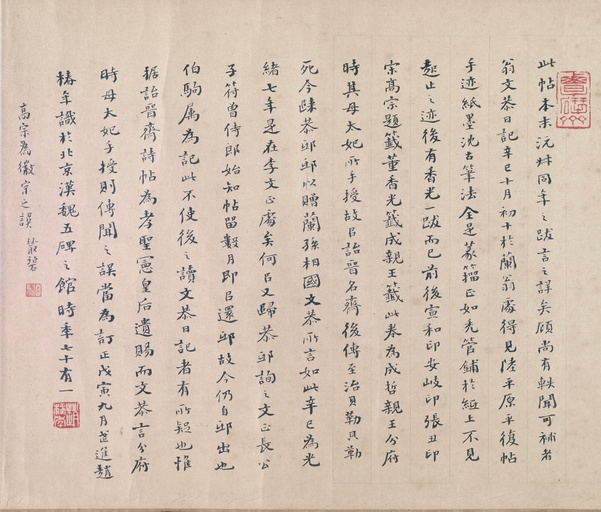 此帖本末沅叔同年之跋言之詳矣顧尚有軼聞可補者
翁文恭日記辛巳十月初十於蘭翁處得見陸平原平復帖
手迹紙墨沈古筆法全是篆籀正如禿管鋪於紙上不見
起止之迹後有香光一跋而已前後宣和印安岐印張丑印
宗高宗題籤董香光籤成親王籤此卷為成哲親王分府
時其母太妃所手授故以詒晉名齋後傳至治貝勒貝勒
死今隸恭邸邸以贈蘭孫相國文恭所言如此辛巳為光
緒七年是在李文正處矣何以又歸恭邸詢之文正長公
子符曾侍郎始知帖留數月即以還邸故今仍自邸出也
伯駒属為記此不使後之讀文恭日記者有所疑也惟
据詒晉齋詩帖為孝聖憲皇后遺賜而文恭言分府
時母太妃手授則傳聞之誤當為訂正戊寅九月武進趙
椿年識於北京漢魏五碑之館時年七十有一
高宗為徽宗之誤